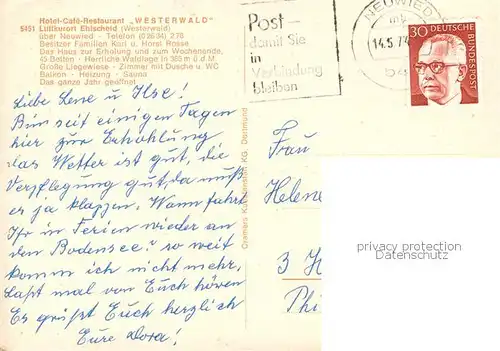 Hotel-Café-Restaurant „WESTERWALD"
5451 Luftkurort Ehlscheid (Westerwald)
über Neuwied - Telefon (02634) 276
Besitzer Familien Karl u. Horst Rosse
Das Haus zur Erholung und zum Wochenende.
45 Betten - Herrliche Waldlage in 365 m ü.d.M.
Große Liegewiese - Zimmer mit Dusche u. WC
Balkon - Heizung - Sauna
Das ganze Jahr geöffnet
Post-
damit Sie
in
Verbindung
bleiben
NEUWIED
14.5.73
30 DEUTSCHE
BUNDESPOST
Liebe Lene u Ilse!
Bin seit einigen Tagen
hier zur Erhohlung
das Wetter ist gut, die
Verpflegung gut, da muß
es ja klappen. Wann fahrt
Ihr in Ferien wieder an
den Bodensee? so weit
komm ich nicht mehr,
laßt mal von Euch hören
Es grüßt Euch herzlich
Eure Dora!
Cramers Kunstanstalt KG, Dortmund
Frau
Helene
3 H
Phi
privacy protection
Datenschutz